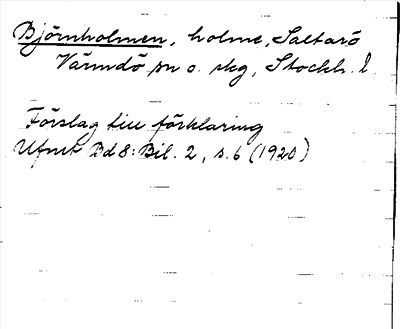 Björnholmen, holme, Saltarö
Värmdö sn o. skg, Stockh. l.
Förslag till förklaring
Ufmt Bd 8: Bil. 2, s. 6 (1920)